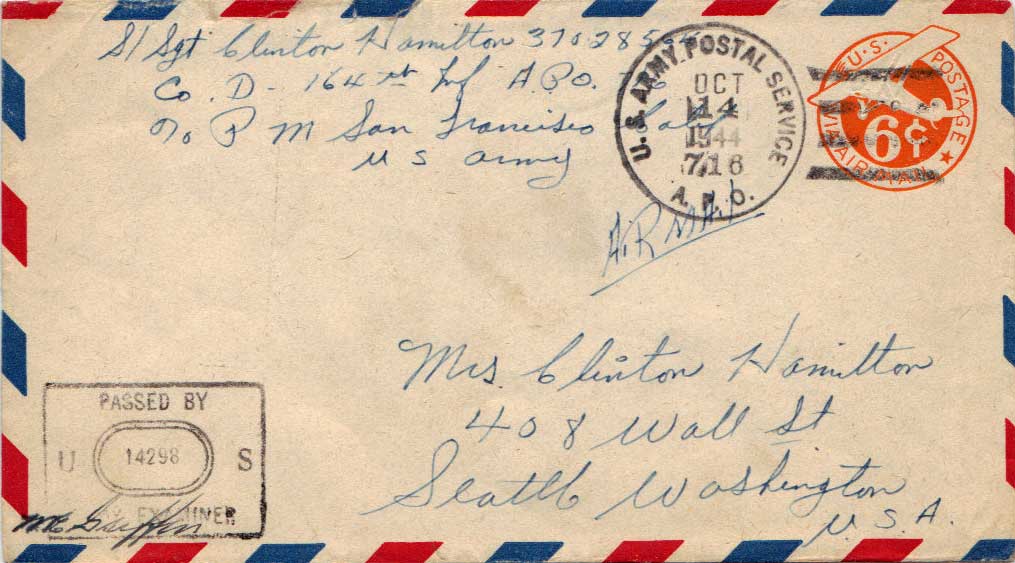 S/Sgt Clinton Hamilton
Co. D - 164th Inf A.P.O.
c/o P M San Francisco Calif
U S Army
U.S. ARMY POSTAL SERVICE
OCT
14
1944
716
A.P.O.
U.S. POSTAGE
6¢
VIA AIR MAIL
AiR MAiL
Mrs. Clinton Hamilton
408 Wall St
Seattle Washington
U.S.A.
PASSED BY
U 14298 S
ARMY EXAMINER